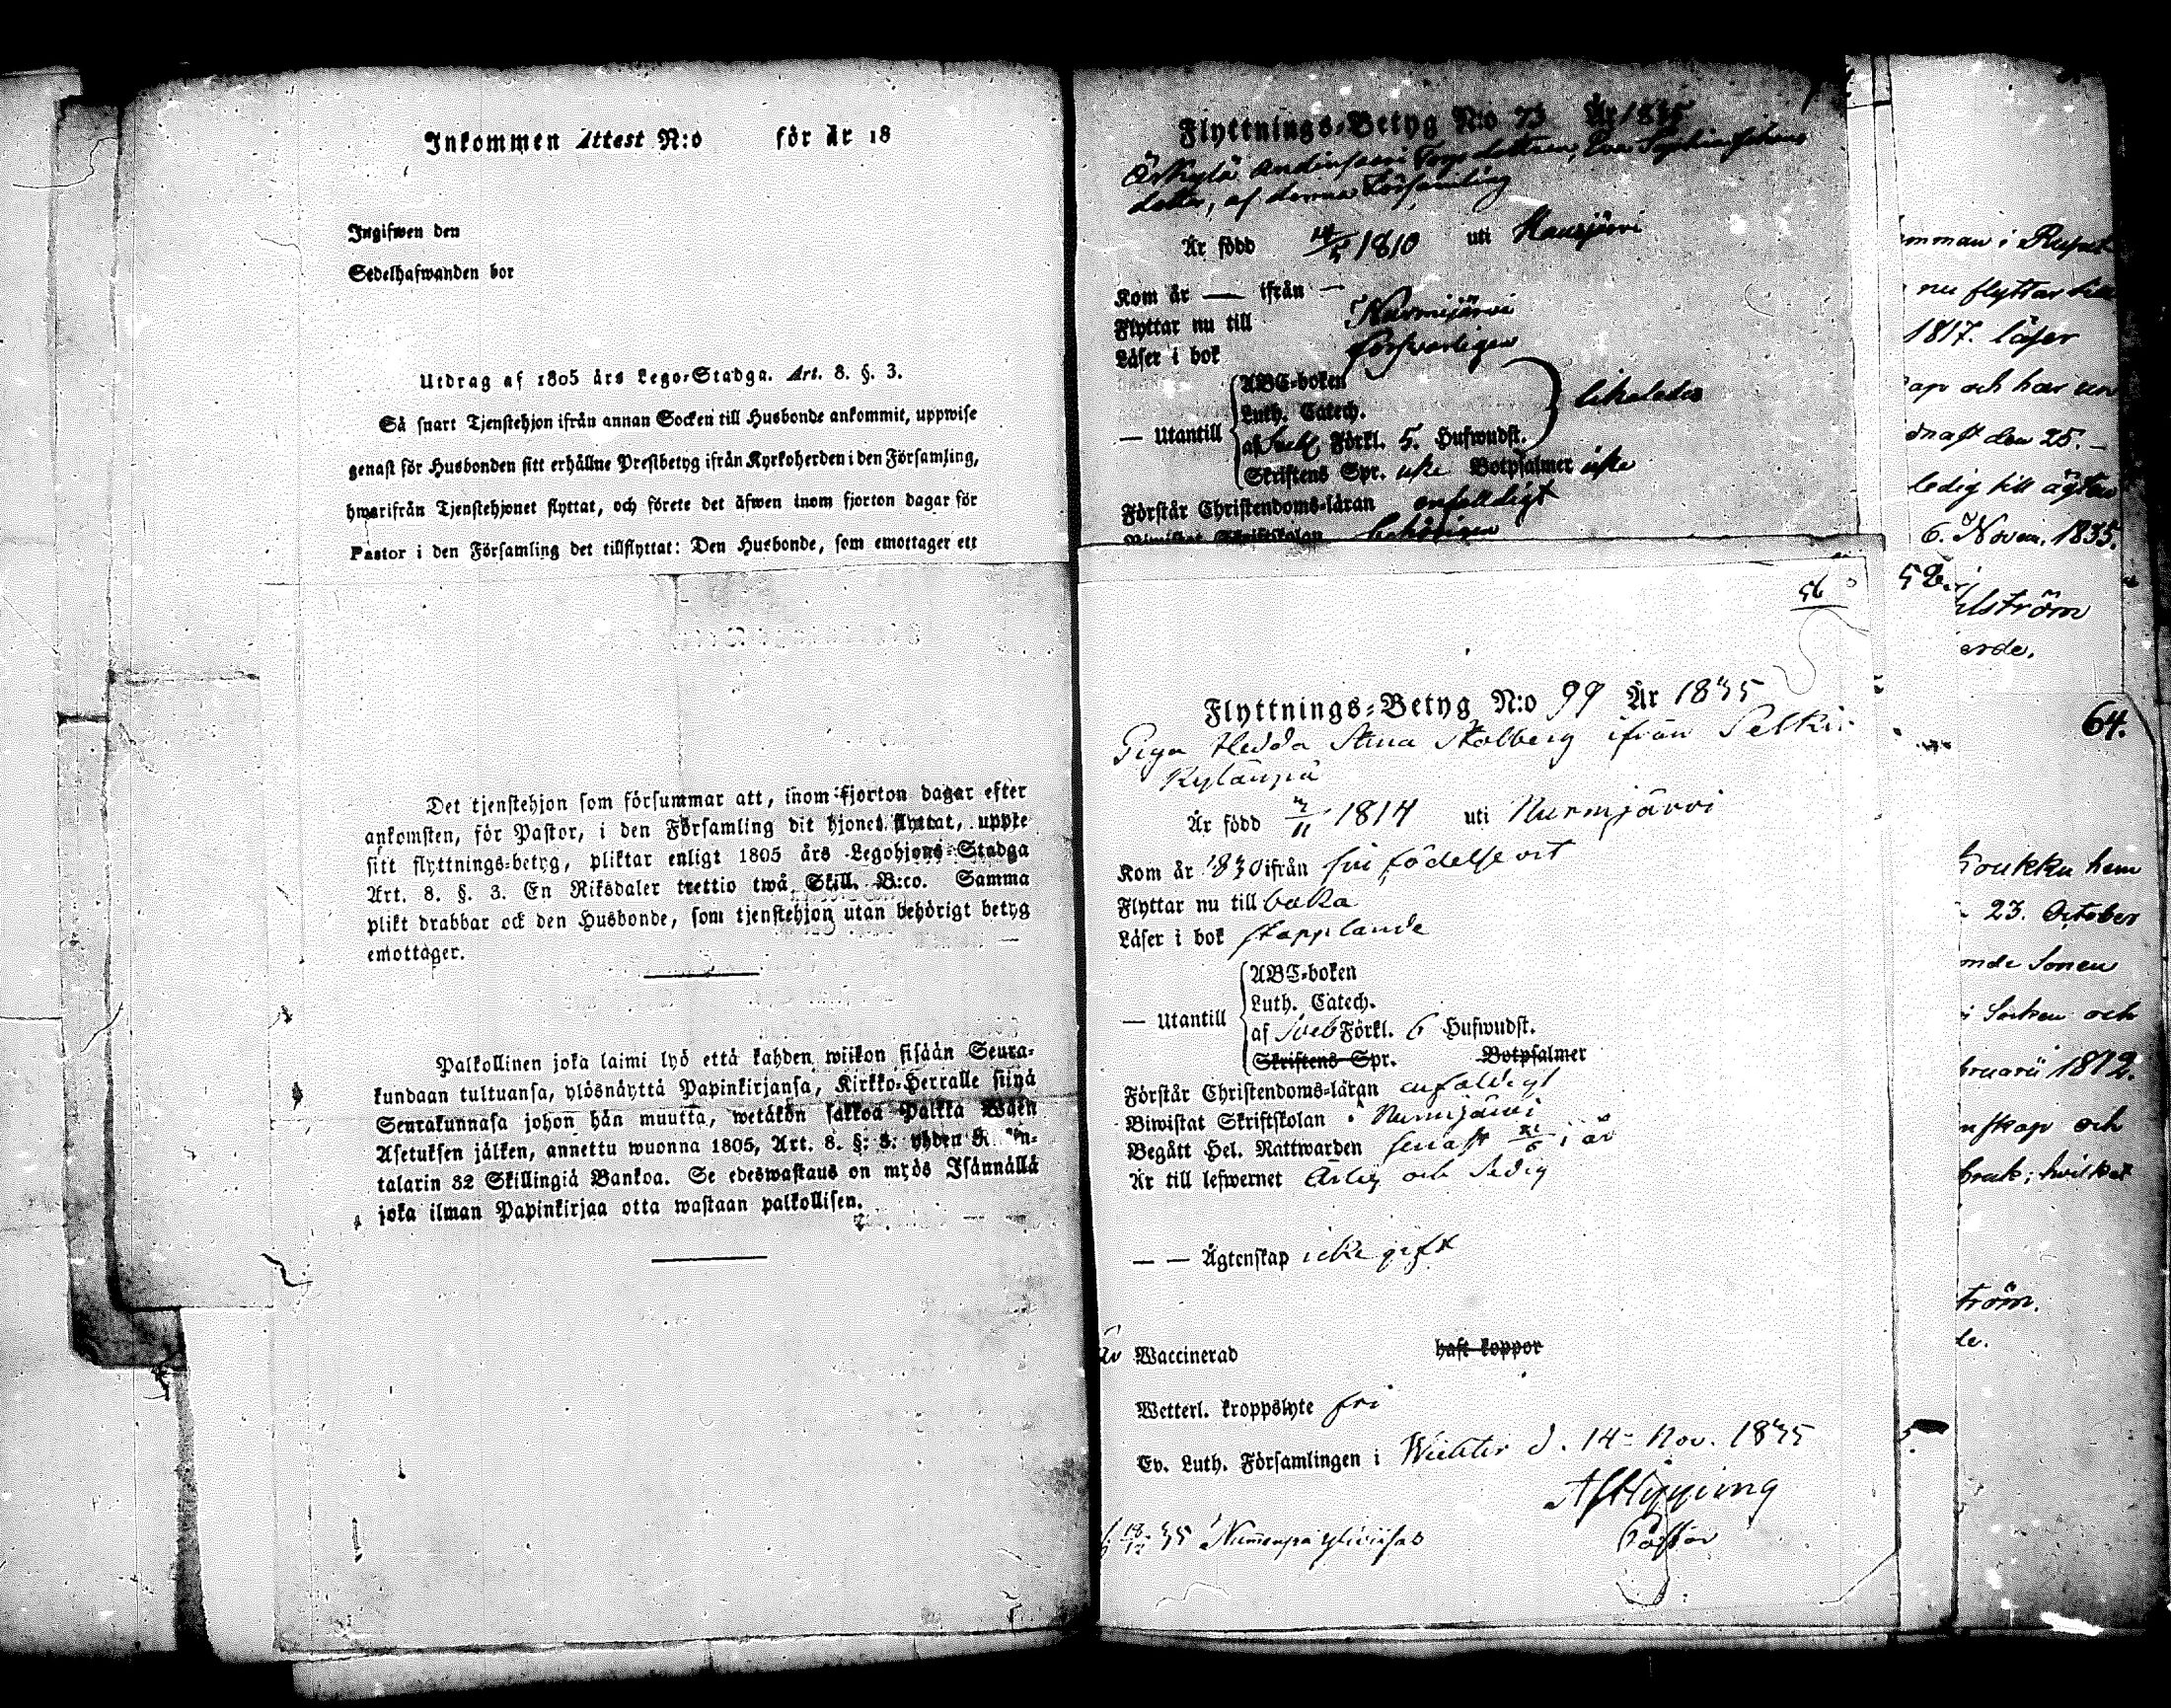 Inkommen Attest N:o för år 18
Ingifwen den
Sedelhafwanden bor
Utdrag af 1805 års Lego-Stadga. Art. 8. §. 3.
Så snart Tjenstehjon ifrån annan Socken till Husbonde ankommit, uppwise
genast för Husbonden sitt erhållne Prestbetyg ifrån Kyrkoherden i den Församling,
hwarifrån Tjenstehjonet flyttat, och förete det äfwen inom fjorton dagar för
Pastor i den Församling det tillflyttat: Den Husbonde, som emottager ett
Det tjenstehjon som försummar att, inom fjorton dagar efter
ankomsten, för Pastor, i den Församling dit hjonet flyttat, uppte
sitt flyttnings-betyg, pliktar enligt 1805 års Legohjons-Stadga
Art. 8. §. 3. En Riksdaler trettio twå Skill. B:co. Samma
plikt drabbar ock den Husbonde, som tjenstehjon utan behörigt betyg
emottager.
Palkollinen joka laimi lyö että kahden wiikon sisään Seura-
kundaan tultuansa, ylösnäyttä Papinkirjansa, Kirkko-Herralle siinä
Seurakunnasa johon hän muutta, wetäkön sakkoa Palkka Wäen
Asetuksen jälken, annettu wuonna 1805, Art. 8. §. 3. yhden
talarin 32 Skillingiä Bankoa. Se edeswastaus on myös Isännällä
joka ilman Papinkirjaa otta wastaan palkollisen.
Flyttnings-Betyg N:o 73 År 1835
dotter, af denna Församling
Är född 1810 uti Hausjärvi
Kom år — ifrån —
Flyttar nu till Nurmijärvi
Läser i bok försvarligen
— Utantill
ABC-boken
Luth. Catech.
af Sveb Förkl. 5. Hufwudst.
likaledes
Skriftens Spr. icke Botpsalmer icke
Förstår Christendoms-läran enfaldigt
Biwistat Skriftskolan behörigen
56
Flyttnings-Betyg N:o 99 År 1835
Pigan Hedda Stina Stolberg ifrån Selki
Kylänpä
Är född /11 1814 uti Nurmijärvi
Kom år 1830 ifrån sin födelseort
Flyttar nu till baka
Läser i bok stapplande
— Utantill
ABC-boken
Luth. Catech.
af Sveb Förkl. 6 Hufwudst.
Skriftens Spr. Botpsalmer
Förstår Christendoms-läran enfaldigt
Biwistat Skriftskolan i Nurmijärvi
Begått Hel. Nattwarden senast i år
Är till lefwernet Ärlig och ledig
— — Ägtenskap icke gift
är Waccinerad haft koppor
Wetterl. kroppslyte fri
Ev. Luth. Församlingen i Wichtis d. 14 Nov. 1835
Pastor
nu flyttar till
1817. läser
och har un
den 25.
ledig till ägten
6. Novem. 1835.
58.
lström
erde.
64.
Soukku hem
23. October
onde Sonen
i Socken och
bruarii 1812.
nskap och
bruk; hvilket
tröm.
de.